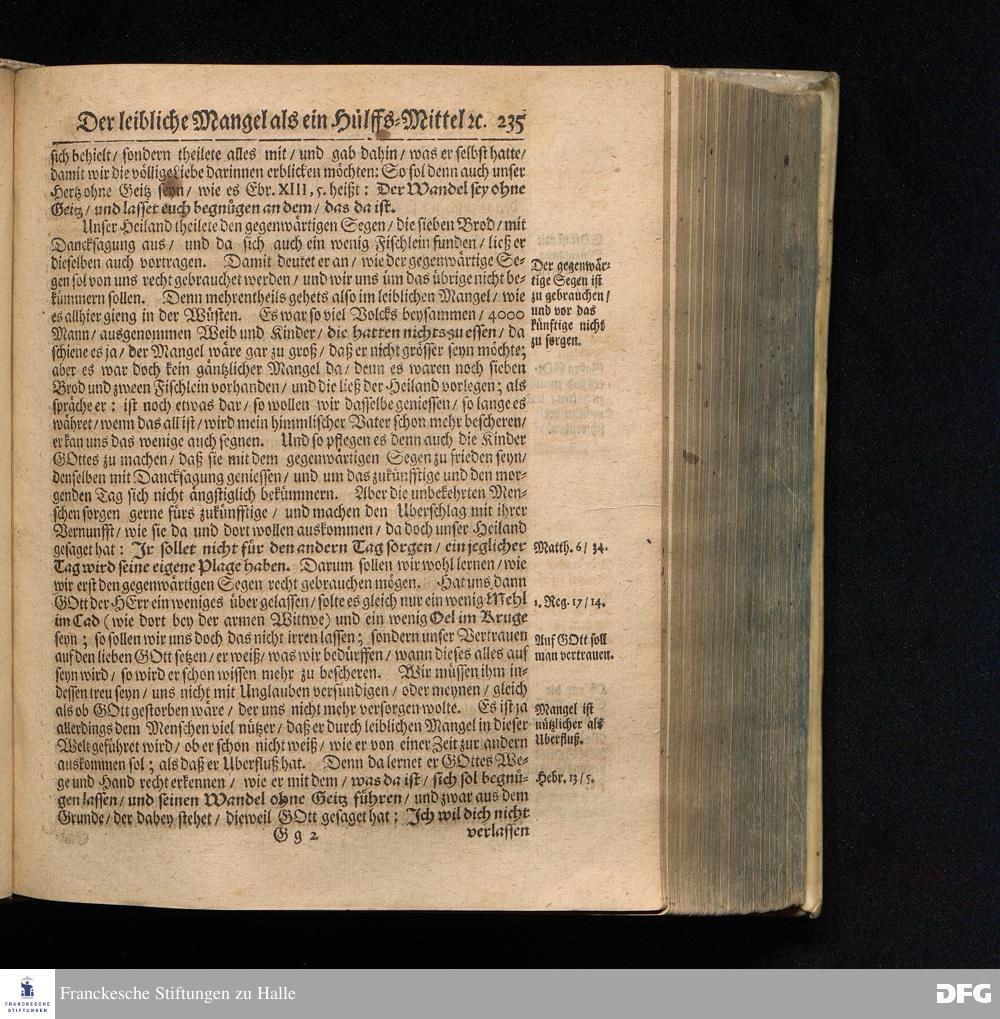 Der leibliche Mangel als ein Hülffs-Mittel ꝛc. 235
sich behielt / sondern theilete alles mit / und gab dahin / was er selbst hatte /
damit wir die völlige Liebe darinnen erblicken möchten: So sol denn auch unser
Hertz ohne Geitz seyn / wie es Ebr. XIII, 5. heißt: Der Wandel sey ohne
Geitz / und lasset euch begnügen an dem / das da ist.
Unser Heiland theilete den gegenwärtigen Segen / die sieben Brod / mit
Dancksagung aus / und da sich auch ein wenig Fischlein funden / ließ er
dieselben auch vortragen. Damit deutet er an / wie der gegenwärtige Se-
gen sol von uns recht gebrauchet werden / und wir uns üm das übrige nicht be-
kümmern sollen. Denn mehrentheils gehets also im leiblichen Mangel / wie
es allhier gieng in der Wüsten. Es war so viel Volcks beysammen / 4000
Mann / ausgenommen Weib und Kinder / die hatten nichts zu essen / da
schiene es ja / der Mangel wäre gar zu groß / daß er nicht grösser seyn möchte;
aber es war doch kein gäntzlicher Mangel da / denn es waren noch sieben
Brod und zween Fischlein vorhanden / und die ließ der Heiland vorlegen; als
spräche er: ist noch etwas dar / so wollen wir dasselbe geniessen / so lange es
währet / wenn das all ist / wird mein himmlischer Vater schon mehr bescheren /
er kan uns das wenige auch segnen. Und so pflegen es denn auch die Kinder
GOttes zu machen / daß sie mit dem gegenwärtigen Segen zu frieden seyn /
denselben mit Dancksagung geniessen / und um das zukünfftige und den mor-
genden Tag sich nicht ängstiglich bekümmern. Aber die unbekehrten Men-
schen sorgen gerne fürs zukünfftige / und machen den Uberschlag mit ihrer
Vernunfft / wie sie da und dort wollen auskommen / da doch unser Heiland
gesaget hat: Ir sollet nicht für den andern Tag sorgen / ein jeglicher
Tag wird seine eigene Plage haben. Darum sollen wir wohl lernen / wie
wir erst den gegenwärtigen Segen recht gebrauchen mögen. Hat uns dann
GOtt der HErr ein weniges über gelassen / solte es gleich nur ein wenig Mehl
im Cad (wie dort bey der armen Wittwe) und ein wenig Oel im Kruge
seyn; so sollen wir uns doch das nicht irren lassen; sondern unser Vertrauen
auf den lieben GOtt setzen / er weiß / was wir bedürffen / wann dieses alles auf
seyn wird / so wird er schon wissen mehr zu bescheren. Wir müssen ihm in-
dessen treu seyn / uns nicht mit Unglauben versündigen / oder meynen / gleich
als ob GOtt gestorben wäre / der uns nicht mehr versorgen wolte. Es ist ja
allerdings dem Menschen viel nützer / daß er durch leiblichen Mangel in dieser
Welt geführet wird / ob er schon nicht weiß / wie er von einer Zeit zur andern
auskommen sol; als daß er Uberfluß hat. Denn da lernet er GOttes We-
ge und Hand recht erkennen / wie er mit dem / was da ist / sich sol begnü-
gen lassen / und seinen Wandel ohne Geitz führen / und zwar aus dem
Grunde / der dabey stehet / dieweil GOtt gesaget hat: Ich wil dich nicht
G g 2 verlassen
Der gegenwär-
tige Segen ist
zu gebrauchen /
und vor das
künftige nicht
zu sorgen.
Matth. 6 / 34.
1. Reg. 17 / 14.
Auf GOtt soll
man vertrauen.
Mangel ist
nützlicher als
Uberfluß.
Hebr. 13 / 5.
FRANCKESCHE
STIFTUNGEN
Franckesche Stiftungen zu Halle
DFG